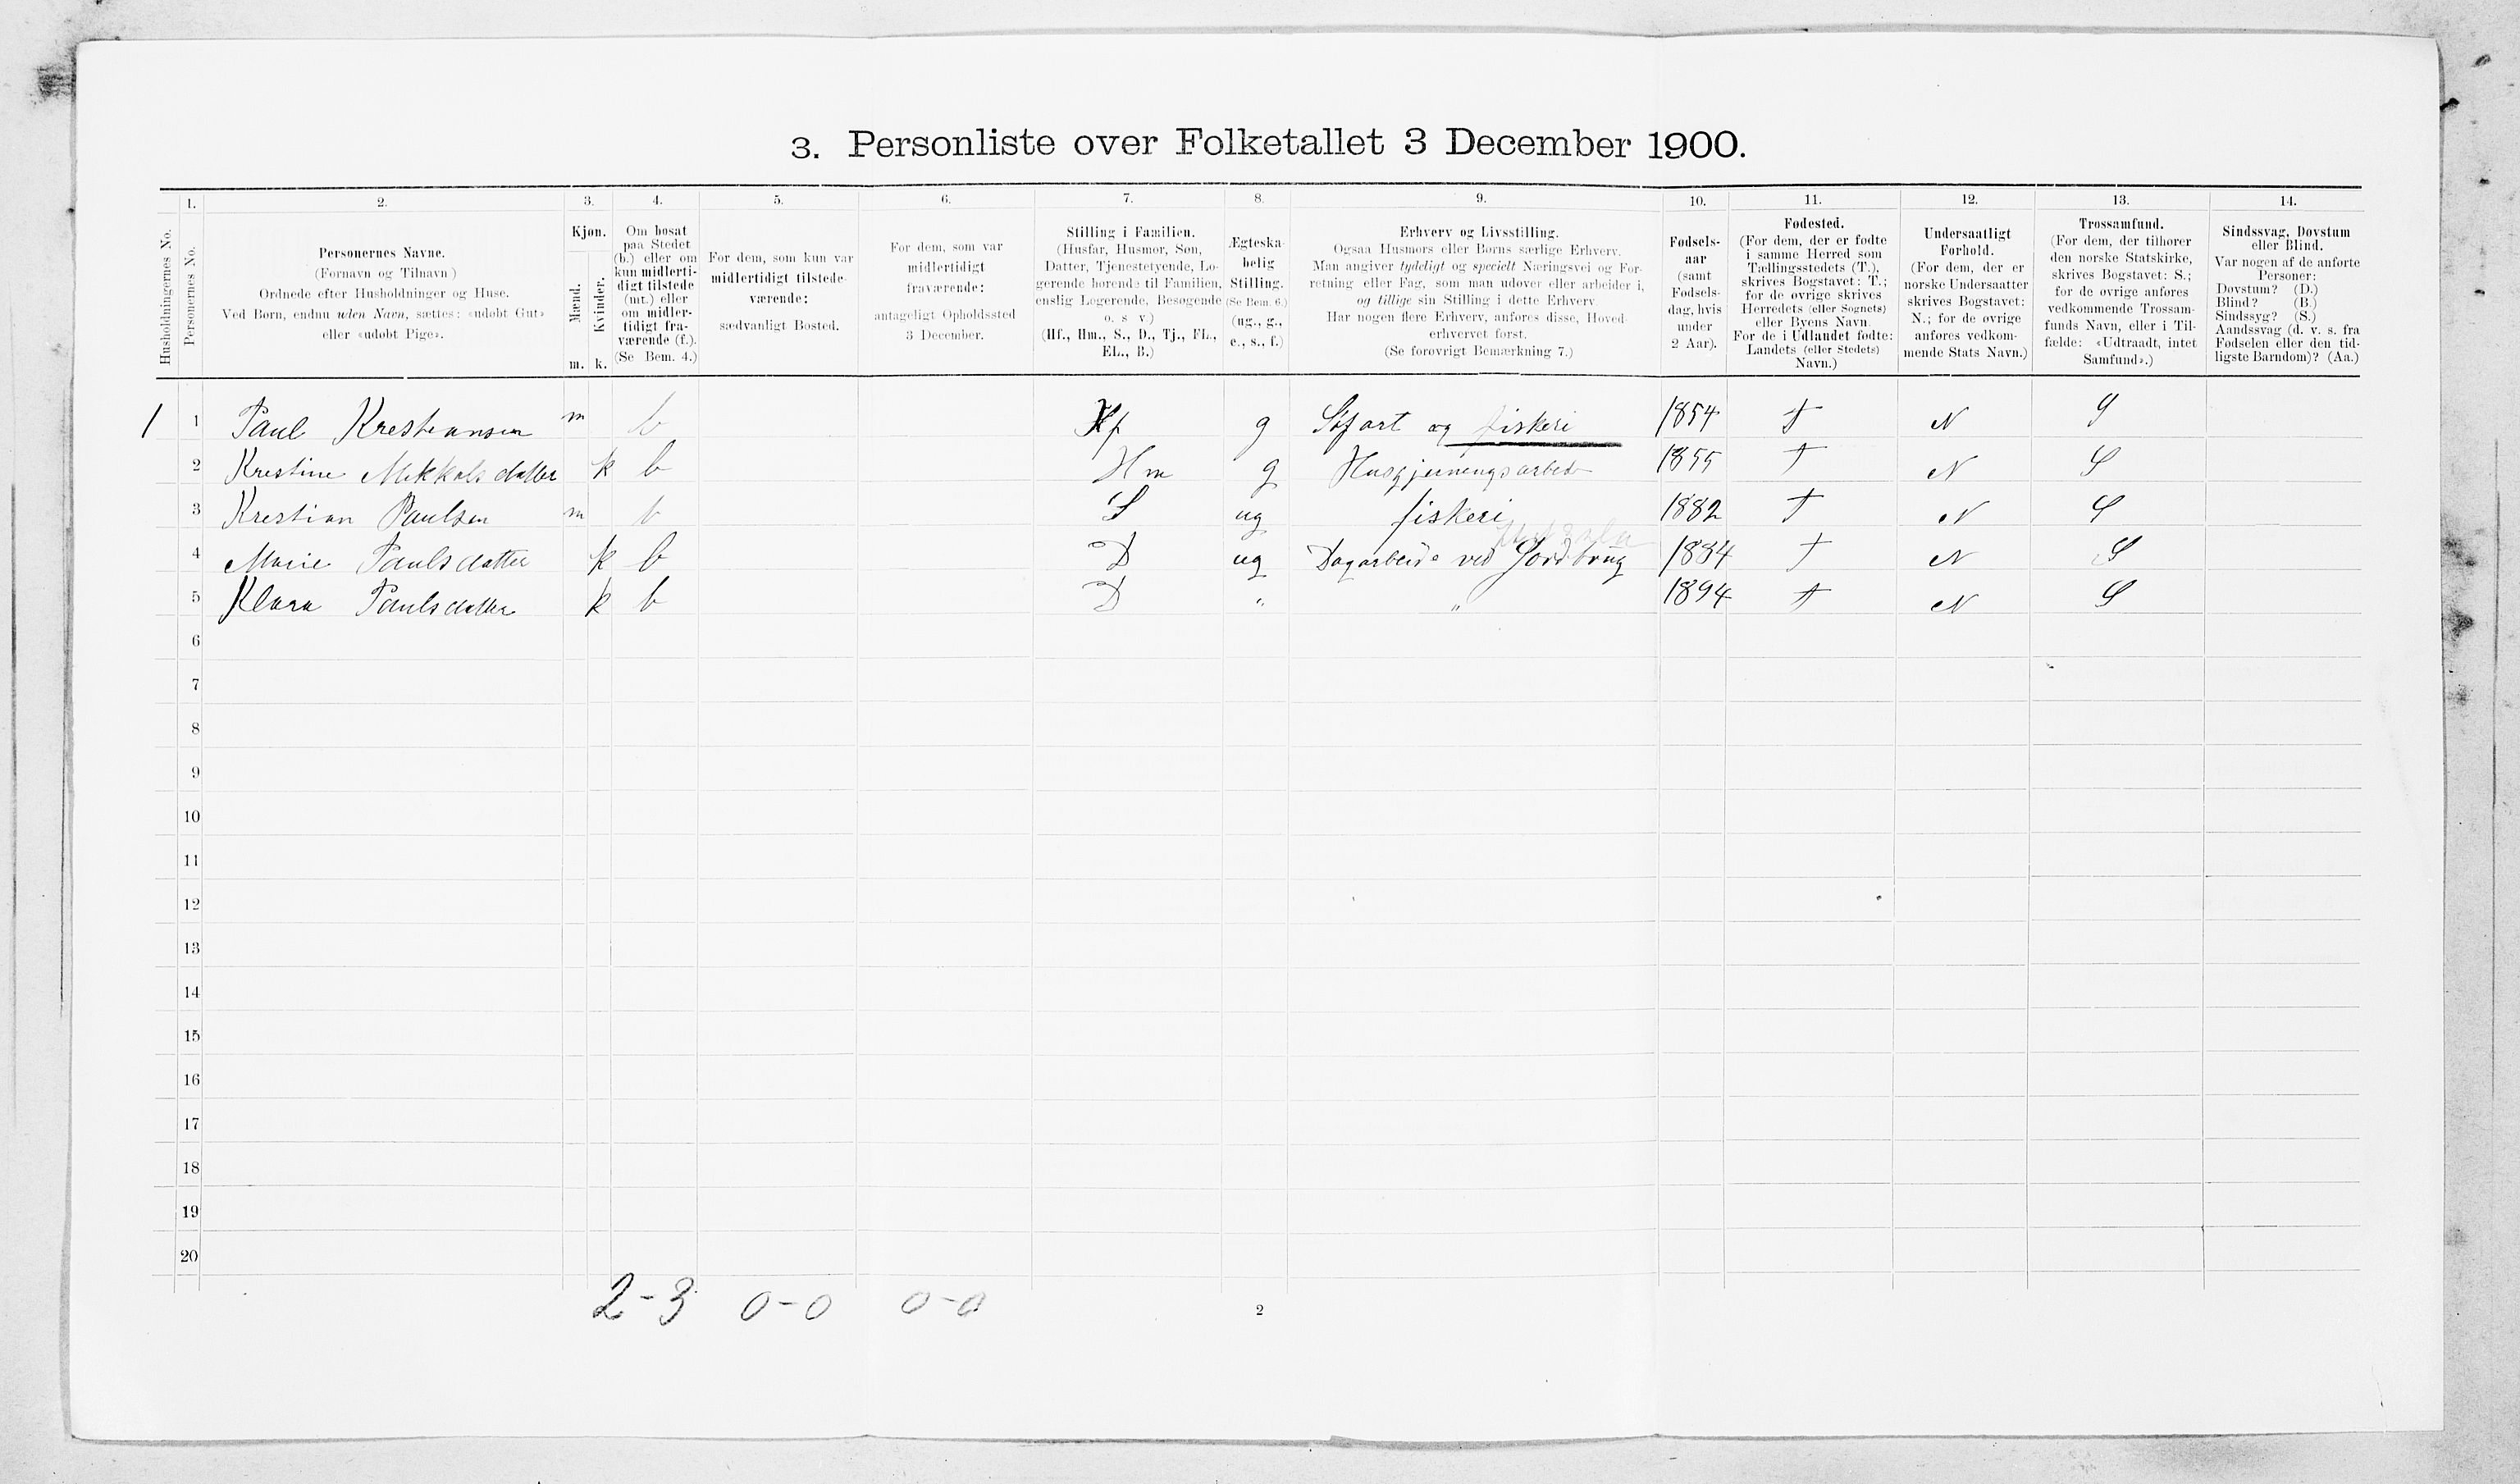 3. Personliste over Folketallet 3 December 1900.
1. 2. 3. 4. 5. 6. 7. 8. 9. 10. 11. 12. 13. 14.
Husholdningernes No.
Personernes No.
Personernes Navne.
(Fornavn og Tilnavn)
Ordnede efter Husholdninger og Huse.
Ved Børn, endnu uden Navn, sættes: «udøbt Gut»
eller «udøbt Pige».
Kjøn.
Mænd.
Kvinder.
m. k.
Om bosat
paa Stedet
(b.) eller om
kun midlerti-
digt tilstede
(mt.) eller
om midler-
tidigt fra-
værende (f.).
(Se Bem. 4.)
For dem, som kun var
midlertidigt tilstede-
værende:
sædvanligt Bosted.
For dem, som var
midlertidigt
fraværende:
antageligt Opholdssted
3 December.
Stilling i Familien.
(Husfar, Husmor, Søn,
Datter, Tjenestetyende, Lo-
gerende hørende til Familien,
enslig Logerende, Besøgende
o. s v.)
(Hf., Hm., S., D., Tj., FL.,
EL., B.)
Ægteska-
belig
Stilling.
(Se Bem. 6.)
(ug., g.,
e., s., f.)
Erhverv og Livsstilling.
Ogsaa Husmors eller Børns særlige Erhverv.
Man angiver tydeligt og specielt Næringsvei og For-
retning eller Fag, som man udøver eller arbeider i,
og tillige sin Stilling i dette Erhverv.
Har nogen flere Erhverv, anføres disse, Hoved-
erhvervet først.
(Se forøvrigt Bemærkning 7.)
Fødsels-
aar
(samt
Fødsels-
dag, hvis
under
2 Aar).
Fødested.
(For dem, der er fødte
i samme Herred som
Tællingsstedets (T.),
skrives Bogstavet: T.;
for de øvrige skrives
Herredets (eller Sognets)
eller Byens Navn.
For de i Udlandet fødte:
Landets (eller Stedets)
Navn.)
Undersaatligt
Forhold.
(For dem, der er
norske Undersaatter
skrives Bogstavet:
N.; for de øvrige
anføres vedkom-
mende Stats Navn.)
Trossamfund.
(For dem, der tilhører
den norske Statskirke,
skrives Bogstavet: S.;
for de øvrige anføres
vedkommende Trossam-
funds Navn, eller i Til-
fælde: «Udtraadt, intet
Samfund».)
Sindssvag, Døvstum
eller Blind.
Var nogen af de anførte
Personer:
Døvstum? (D.)
Blind? (B.)
Sindssyg? (S.)
Aandssvag (d. v. s. fra
Fødselen eller den tid-
ligste Barndom)? (Aa.)
1 1 Paul Krestiansen m b Hf g Søfart og fiskeri 1854 T N S
2 Krestine Mikkelsdatter k b Hm g Husgjerningsarbed 1855 T N S
3 Krestian Paulsen m b S ug fiskeri 1882 T N S
4 Marie Paulsdatter k b D ug Dagarbeide ved Jordbrug 1884 T N S
5 Klara Paulsdatter k b D " " 1894 T N S
6
7
8
9
10
11
12
13
14
15
16
17
18
19
20
2-3 0-0 0-0
2